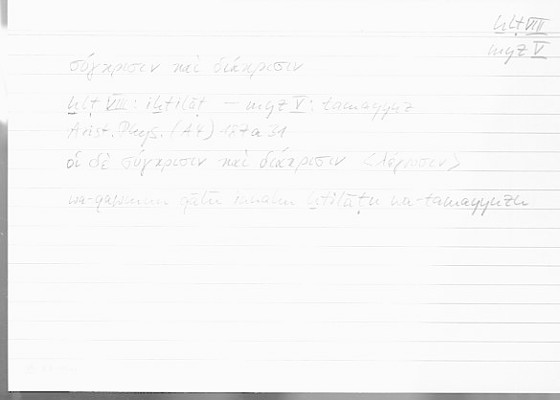 ḫlṭ VIII
myz V
σύγκρισιν καὶ διάκρισιν
ḫlṭ VIII: iḫtilāṭ – myz V: tamayyuz
Arist. Phys. (A4) 187a31
οἱ δὲ σύγκρισιν καὶ διάκρισιν <λέγουσιν>
wa-qawmun qālū innahu ḫtilāṭu wa-tamayyuzu